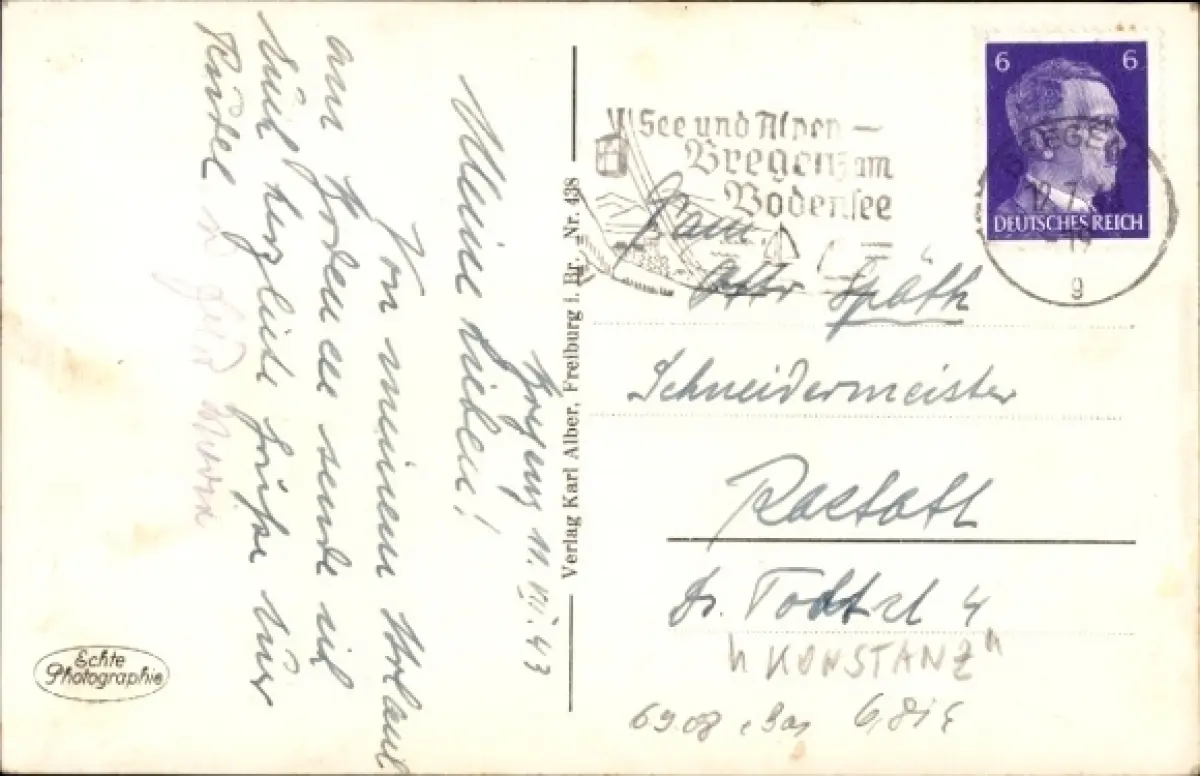 Bregenz 11. VII. 43
Meine Lieben!
Von meinem Urlaub
am Bodensee sende ich
Euch herzliche Grüße Eure
Echte
Photographie
Verlag Karl Alber, Freiburg i. Br. Nr. 438
See und Alpen —
Bregenz am
Bodensee
6 6
DEUTSCHES REICH
BREGENZ
12.7.
g
Fam
Otto Späth
Schneidermeister
Rastatt
Dr. Todtstr 4
"KONSTANZ"